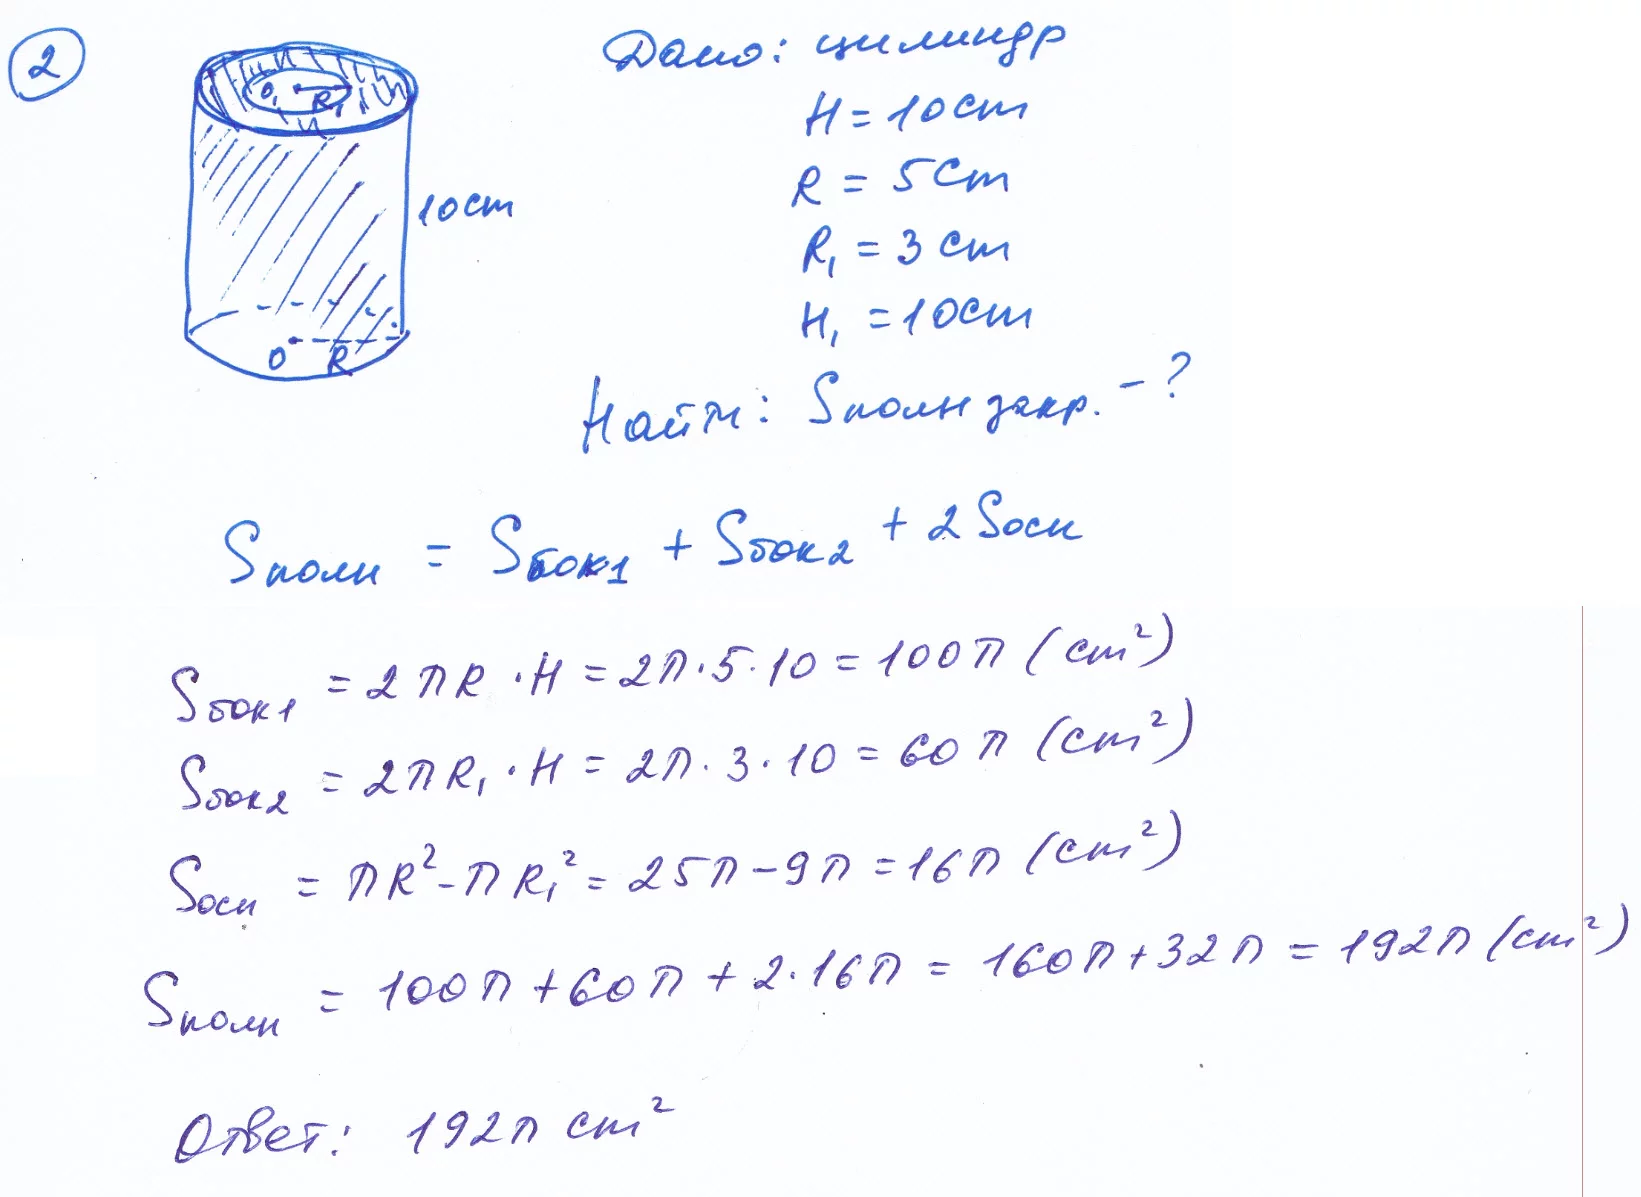 2
O₁ R₁
10cm
O R
Дано: цилиндр
H = 10cm
R = 5cm
R₁ = 3 cm
H₁ = 10cm
Найти: Sполн закр. - ?
Sполн = Sбок1 + Sбок2 + 2 Sосн
Sбок1 = 2πR · H = 2π · 5 · 10 = 100π (cm²)
Sбок2 = 2πR₁ · H = 2π · 3 · 10 = 60π (cm²)
Sосн = πR² - πR₁² = 25π - 9π = 16π (cm²)
Sполн = 100π + 60π + 2 · 16π = 160π + 32π = 192π (cm²)
Ответ: 192π cm²